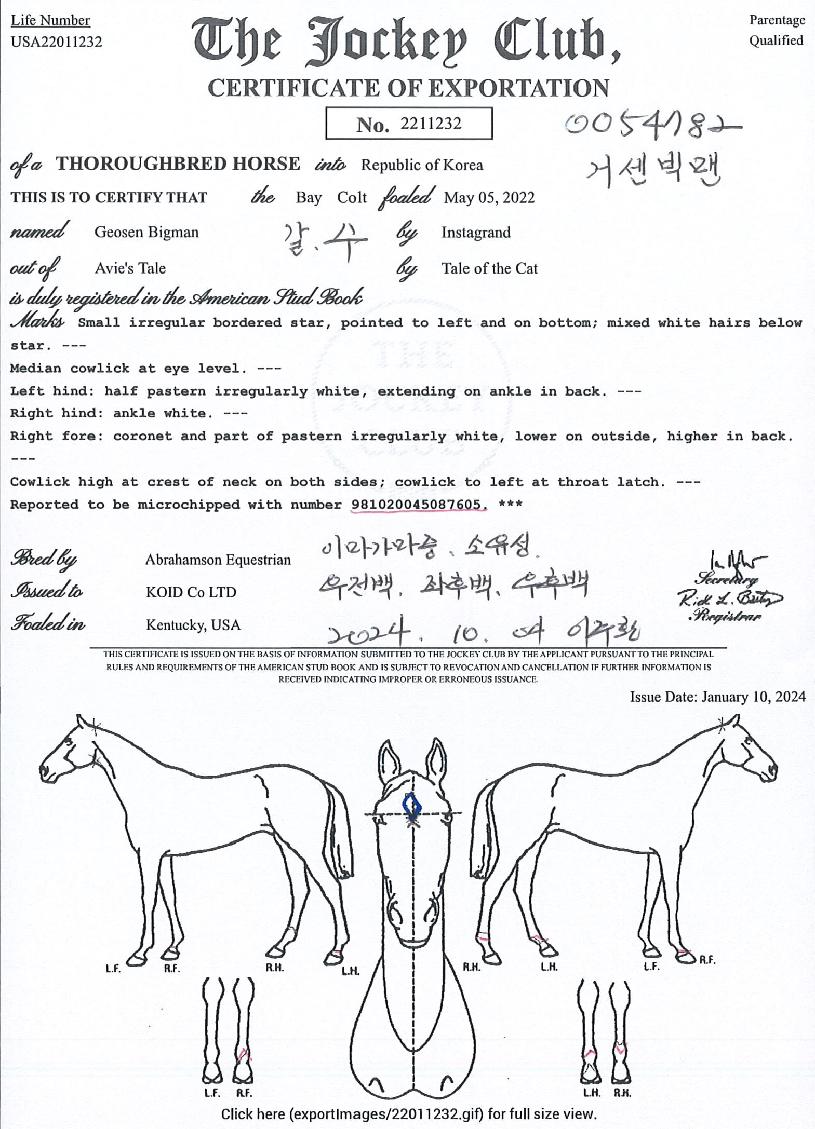 Life Number
USA22011232
The Jockey Club,
Parentage
Qualified
CERTIFICATE OF EXPORTATION
No. 2211232
0054782
of a THOROUGHBRED HORSE into Republic of Korea
거센빅맨
THIS IS TO CERTIFY THAT the Bay Colt foaled May 05, 2022
named Geosen Bigman 갈. 수 by Instagrand
out of Avie's Tale by Tale of the Cat
is duly registered in the American Stud Book
Marks Small irregular bordered star, pointed to left and on bottom; mixed white hairs below
star. ---
Median cowlick at eye level. ---
Left hind: half pastern irregularly white, extending on ankle in back. ---
Right hind: ankle white. ---
Right fore: coronet and part of pastern irregularly white, lower on outside, higher in back.
---
Cowlick high at crest of neck on both sides; cowlick to left at throat latch. ---
Reported to be microchipped with number 981020045087605. ***
THE JOCKEY CLUB
Bred by Abrahamson Equestrian 이마가마중、소유성.
Issued to KOID Co LTD 우전백, 좌후백, 우후백
Secretary
Foaled in Kentucky, USA 2024. 10. 04
Registrar
THIS CERTIFICATE IS ISSUED ON THE BASIS OF INFORMATION SUBMITTED TO THE JOCKEY CLUB BY THE APPLICANT PURSUANT TO THE PRINCIPAL
RULES AND REQUIREMENTS OF THE AMERICAN STUD BOOK AND IS SUBJECT TO REVOCATION AND CANCELLATION IF FURTHER INFORMATION IS
RECEIVED INDICATING IMPROPER OR ERRONEOUS ISSUANCE.
Issue Date: January 10, 2024
L.F. R.F. R.H. L.H. R.H. L.H. L.F. R.F.
L.F. R.F. L.H. R.H.
Click here (exportImages/22011232.gif) for full size view.